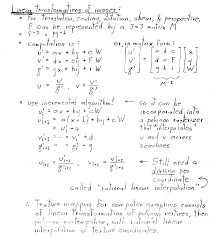 Linear transformations of images:
• For translation, scaling, rotation, shear, & perspective,
F can be represented by a 3×3 matrix M
• F⁻¹ = M⁻¹
• Computation is:
or, in matrix form:
u' = ax + by + cW
v' = dx + ey + fW
g' = gx + hy + iW
[u' v' g'] = [a b c d e f g h i] [x y W]
M⁻¹
u = u'/g' , v = v'/g'
• use incremental algorithm!
u'ᵢ = ax + by + cW
u'ᵢ₊₁ = a(x+1) + by + cW
= u'ᵢ + a
v'ᵢ₊₁ = v'ᵢ + d
g'ᵢ₊₁ = g'ᵢ + g
← so it can be
incorporated into
a polygon rasterizer
that interpolates
u and v across
scanlines
uᵢ₊₁ = u'ᵢ₊₁/g'ᵢ₊₁ , vᵢ₊₁ = v'ᵢ₊₁/g'ᵢ₊₁
← Still need a
division per
coordinate
called "rational linear interpolation"
∴ Texture mapping for computer graphics consists
of linear transformation of polygon vertices, then
polygon rasterization, with rational linear
interpolation of texture coordinates.